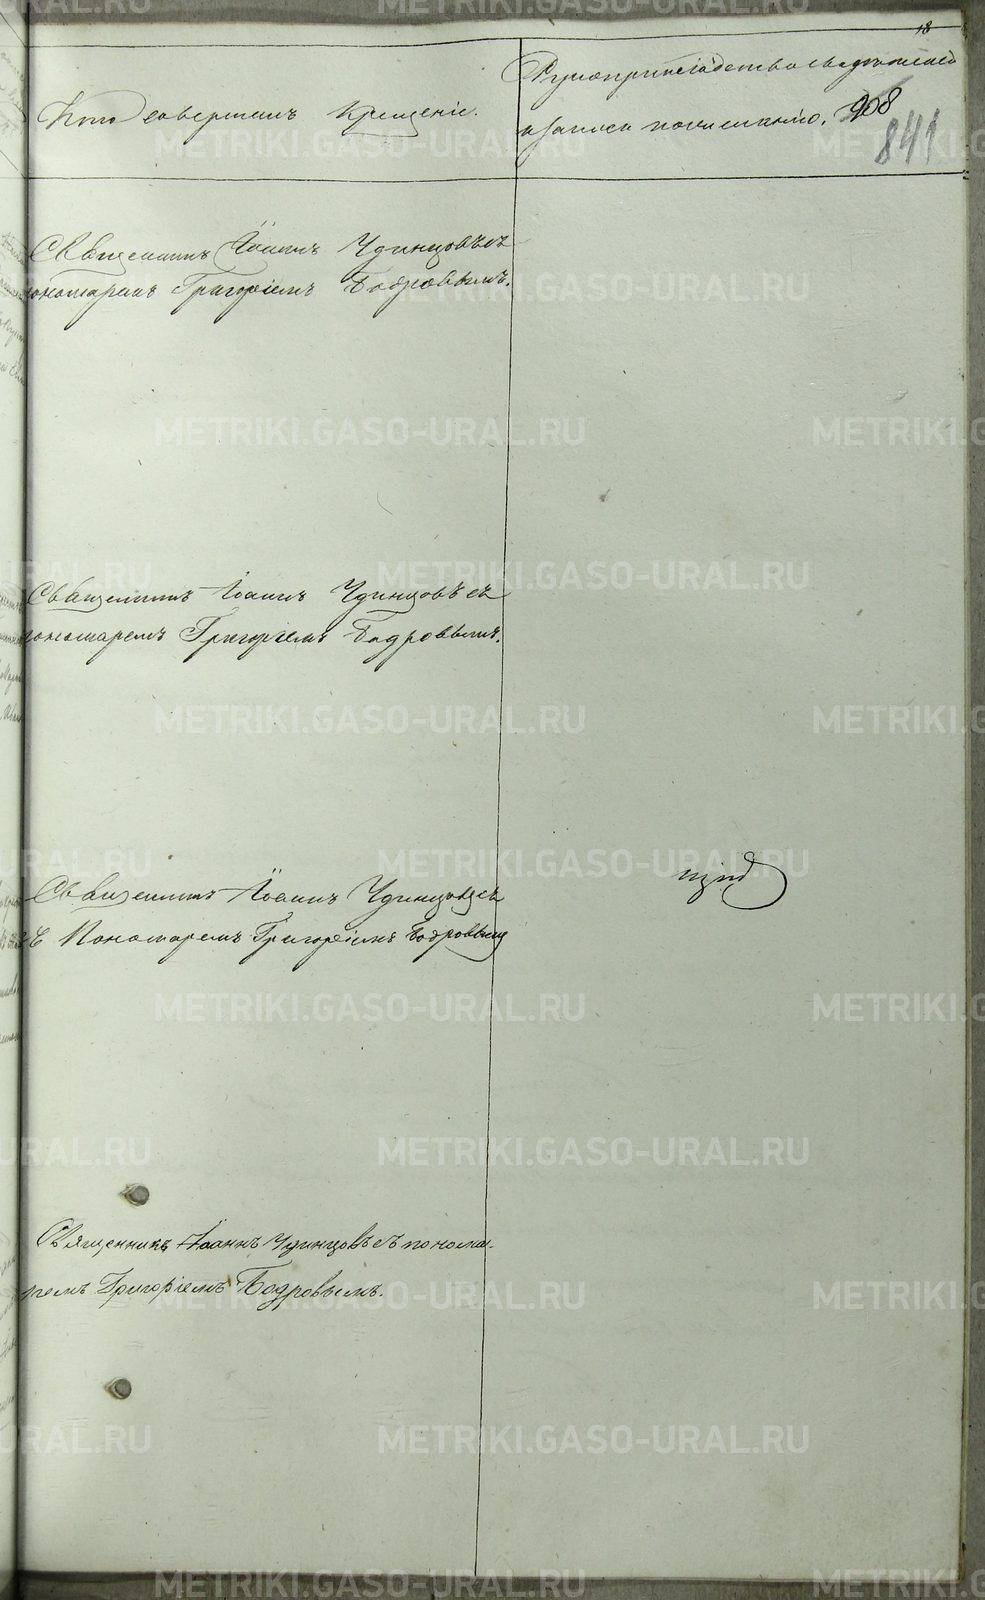 18
Кто совершалъ крещеніе.
Рукоприкладство свидѣтелей
и записи по желанію. 908
841
Священникъ Іоаннъ Удинцовъ съ
пономаремъ Григоріемъ Бодровымъ.
Священникъ Іоаннъ Удинцовъ съ
пономаремъ Григоріемъ Бодровымъ.
Священникъ Іоаннъ Удинцовъ съ
Пономаремъ Григоріемъ Бодровымъ
Священникъ Іоаннъ Удинцовъ съ понома-
ремъ Григоріемъ Бодровымъ.
METRIKI.GASO-URAL.RU